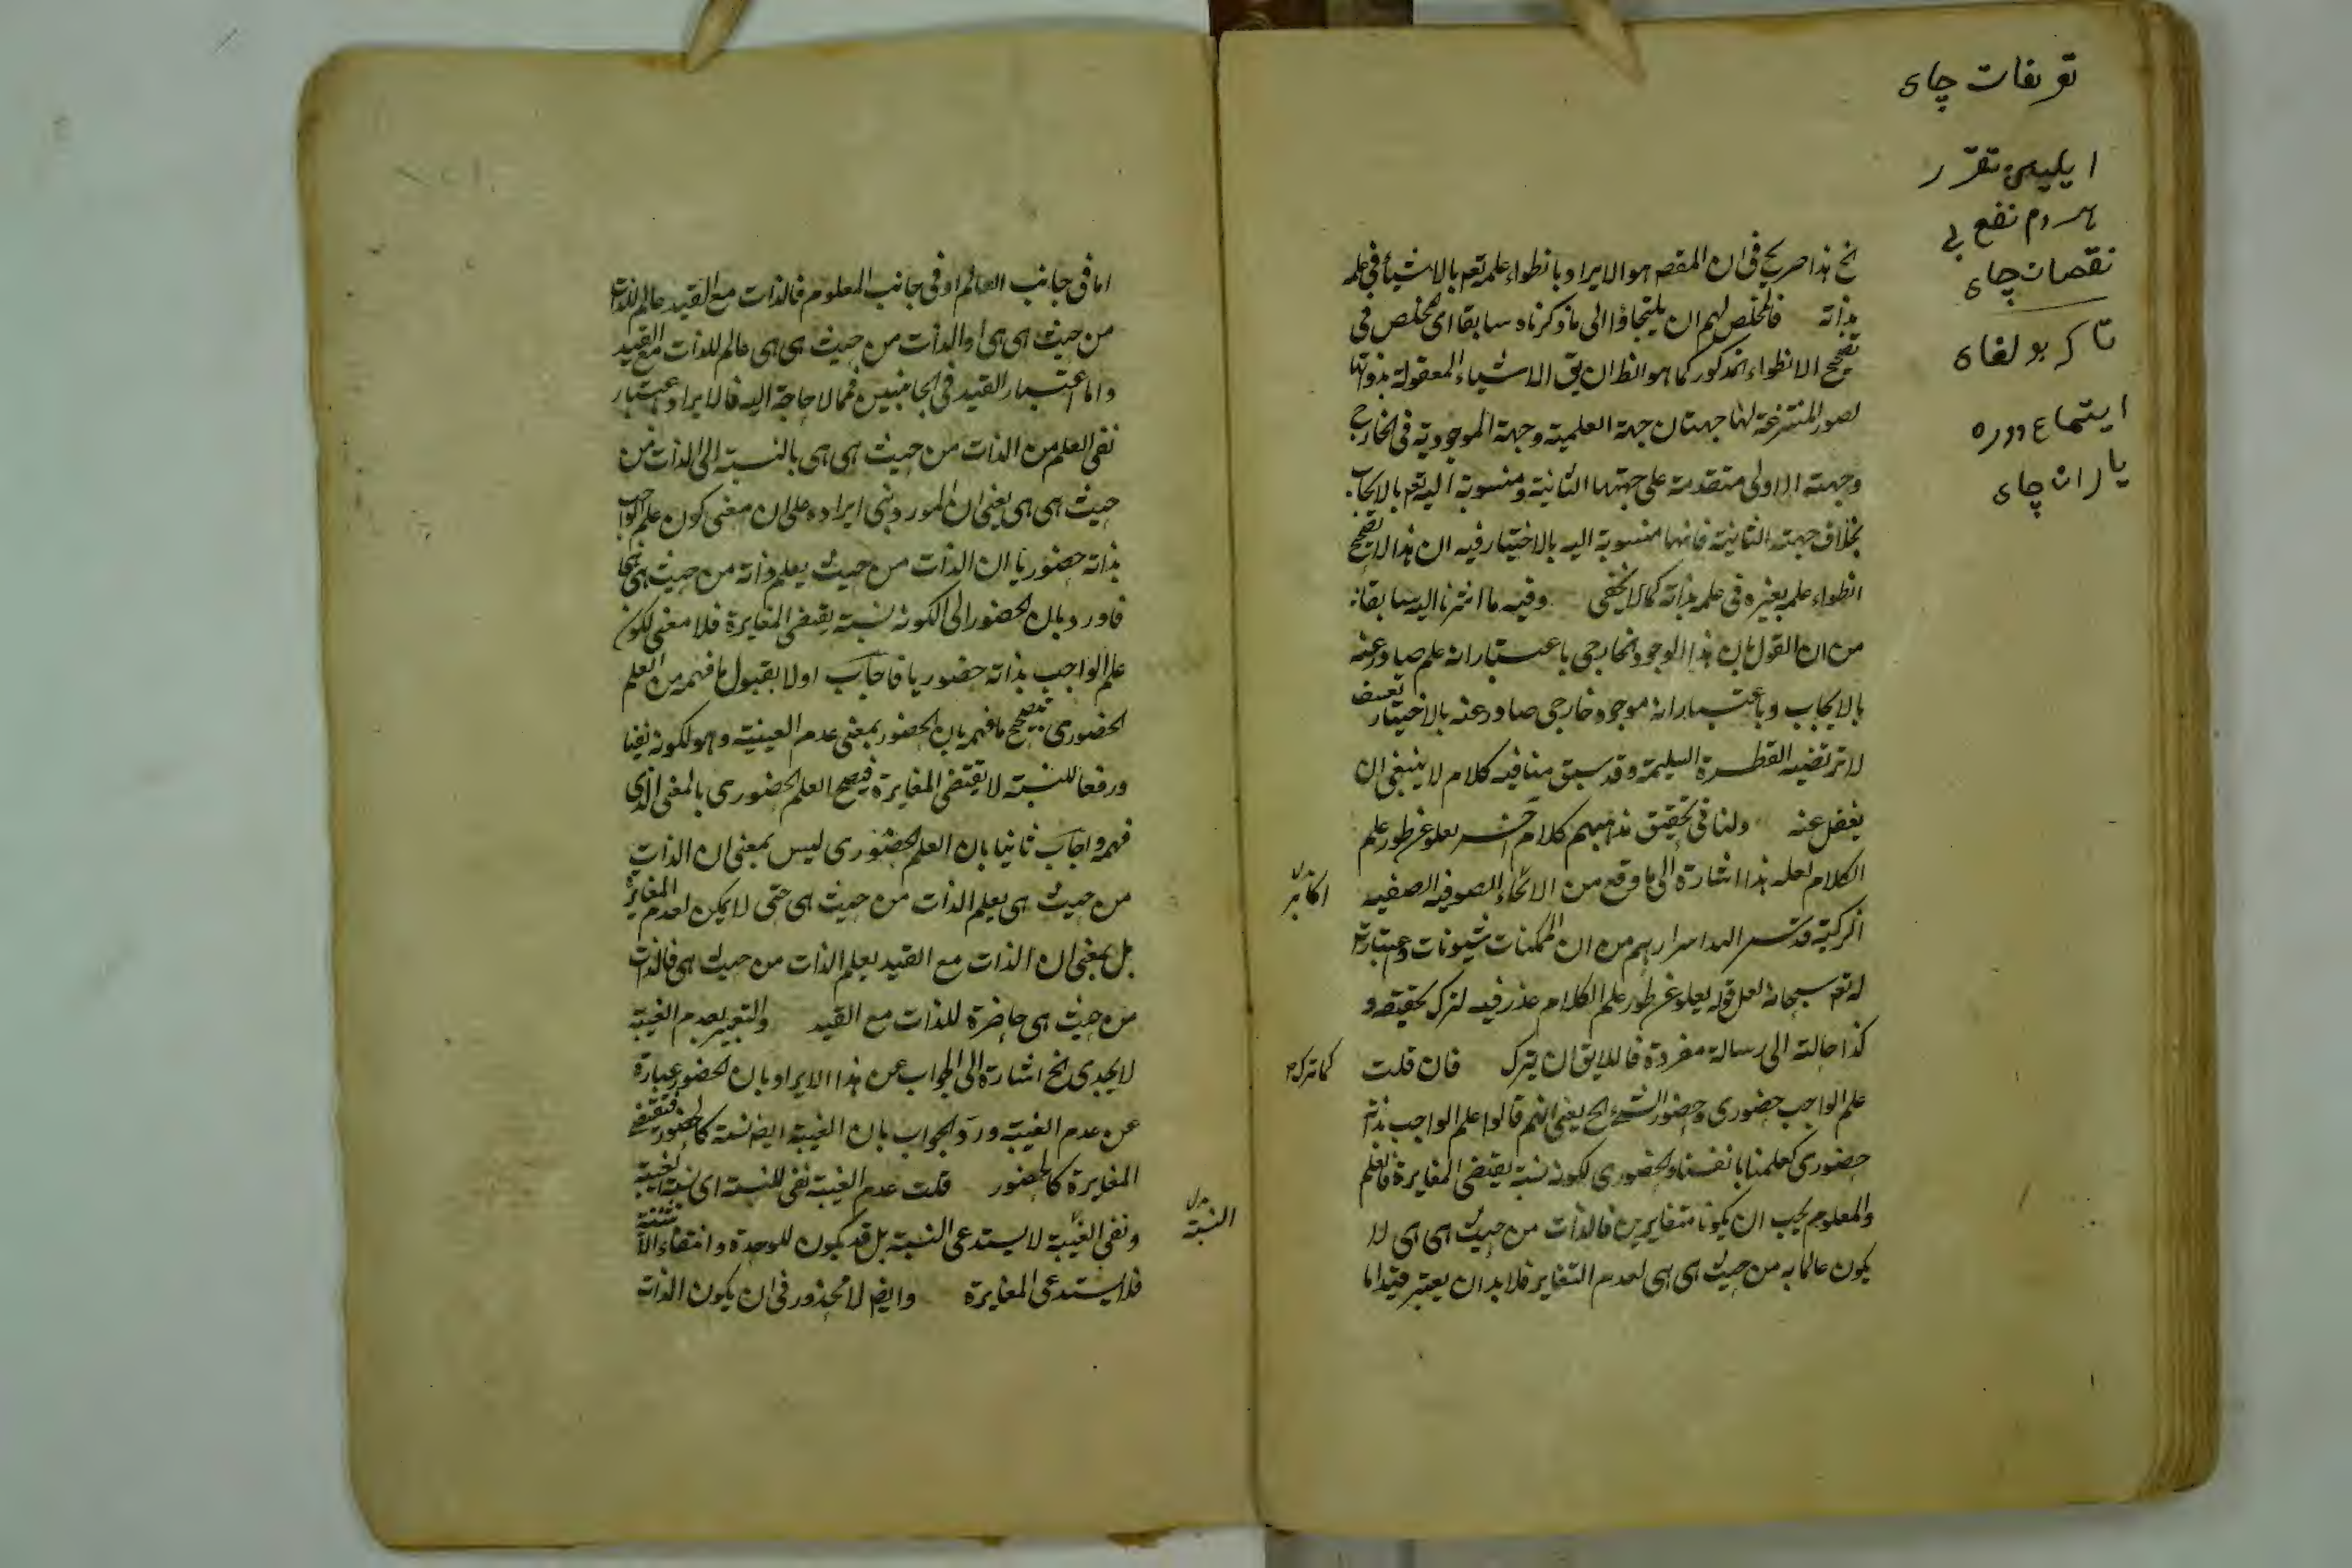 تعریفات چای
ایلیس تقرر
هردم نفع بی
نقصان چای
تا که بولغای
ایتماع دوره
یاران چای
الخ هذا صریح فی ان المقصـ هو الایراد بانطواء علمه تعـ بالاشیاء فی علمه
بذاته فالمخلص لهم ان یلتجاؤا الی ما ذکرناه سابقا ای المخلص فی
تصحیح الانطواء المذکور کما هو الظ ان یق الاشیاء المعقولة بذواتها
لصور المنتزعة لها جهتان جهة العلمیة وجهة الموجودیة فی الخارج
وجهته الاولی متقدمة علی جهتها الثانیة ومنسوبة الیه تعـ بالایجاب
بخلاف جهته الثانیة فانها منسوبة الیه بالاختیار فیه ان هذا لا یصحح
انطواء علمه بغیره فی علمه بذاته کما لا یخفی وفیه ما اشرنا الیه سابقا
من ان القول بان هذا الوجود الخارجی باعتبار انه علم صادر عنه
بالایجاب وباعتبار انه موجود خارجی صادر عنه بالاختیار تعسف
لا ترتضیه الفطرة السلیمة وقد سبق منا فیه کلام لا ینبغی ان
یغفل عنه ولنا فی تحقیق مذهبهم کلام آخر یعلو عن طور علم
الکلام لعله هذا اشارة الی ما وقع من الاکابر الصوفیة الصفیة
اکابر
الزکیة قدس الله اسرارهم من ان الممکنات شیونات واعتبارات
له تعـ سبحانه لعل قوله یعلو عن طور علم الکلام عذر فیه لترک تحقیقه و
کذا حالته الی رسالة مفردة فاللایق ان یترک فان قلت
کما ترک
علم الواجب حضوری وحضور الشیء الخ یعنی انهم قالوا علم الواجب بذاته
حضوری کعلمنا بانفسنا والحضوری لکونه نسبة یقتضی المغایرة فالعلم
والمعلوم یجب ان یکونا متغایرین فالذات من حیث هی هی لا
یکون عالما به من حیث هی هی لعدم التغایر فلا بد ان یعتبر قیدا ما
اما فی جانب العالم او فی جانب المعلوم فالذات مع القید عالم للذات
من حیث هی هی او الذات من حیث هی هی عالم للذات مع القید
واما اعتبار القید فی الجانبین فمما لا حاجة الیه فالایراد اعتبار
نفی العلم من الذات من حیث هی هی بالنسبة الی الذات من
حیث هی هی یعنی ان المورد بنی ایراده علی ان معنی کون علم الواجب
بذاته حضوریا ان الذات من حیث یعلم ذاته من حیث هی
فاورد بان الحضور الی لکونه نسبة یقتضی المغایرة فلا معنی لکون
علم الواجب بذاته حضوریا فاجاب اولا بقبول ما فهمه من العلم
الحضوری بتصحیح ما فهمه بان الحضور بمعنی عدم الغیبة وهو لکونه نفیا
ورفعا للنسبة لا یقتضی المغایرة فیصح العلم الحضوری بالمعنی الذی
فهمه واجاب ثانیا بان العلم الحضوری لیس بمعنی ان الذات
من حیث هی یعلم الذات من حیث هی حتی لا یمکن لعدم المغایرة
بل بمعنی ان الذات مع القید یعلم الذات من حیث هی فالذات
من حیث هی حاضرة للذات مع القید والتعبیر بعدم الغیبة
لا یجدی الخ اشارة الی الجواب عن هذا الایراد بان الحضور عبارة
عن عدم الغیبة ورد الجواب بان الغیبة ایضـ نسبة کالحضور فتقتضی
المغایرة کالحضور قلت عدم الغیبة نفی للنسبة ای نسبة الغیبة
النسبة
ونفی الغیبة لا یستدعی النسبة بل قد یکون للوحدة وانتفاء الاثنینیة
فلا یستدعی المغایرة وایضـ لا محذور فی ان یکون الذات